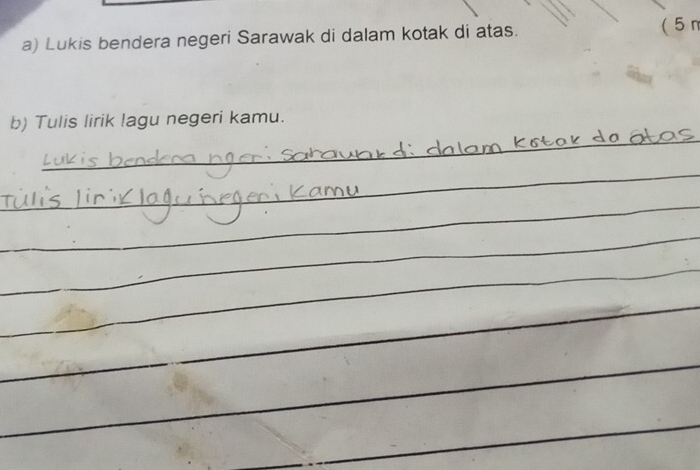 a) Lukis bendera negeri Sarawak di dalam kotak di atas.
( 5 m
b) Tulis lirik lagu negeri kamu.
Lukis bendera ngeri sarawak di dalam kotak da atas
Tulis lirik lagu inegeri kamu